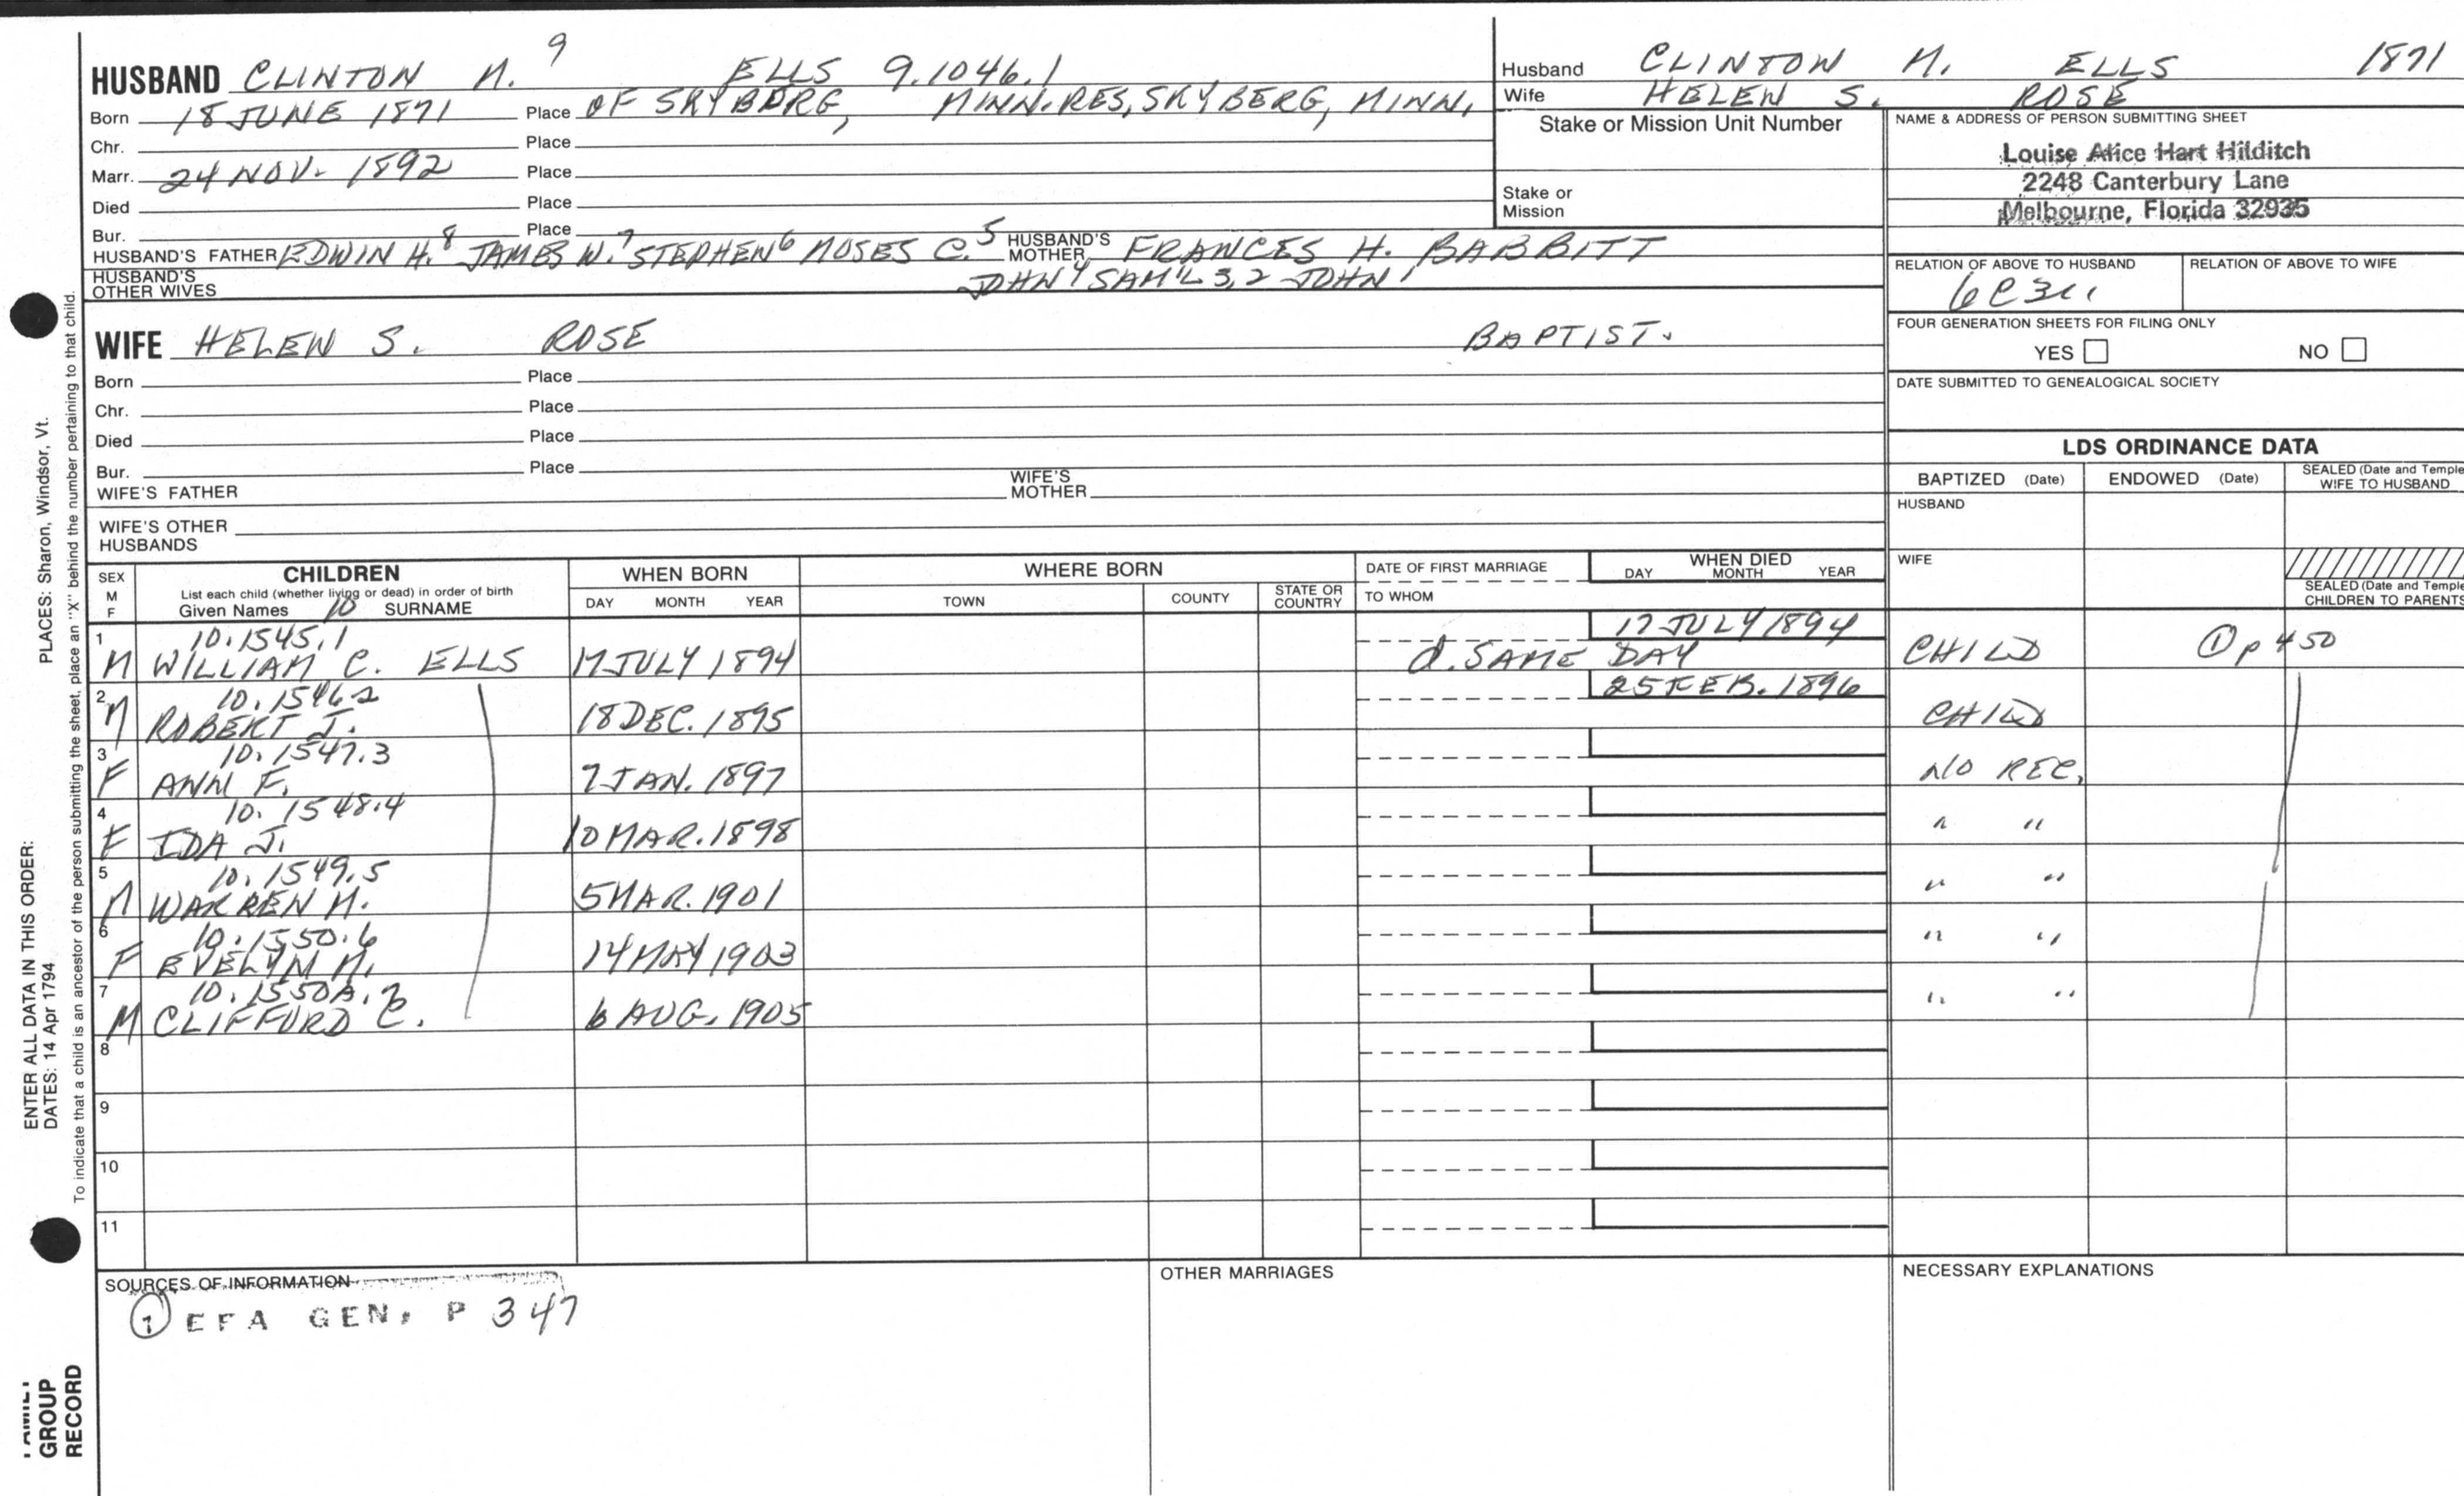 HUSBAND CLINTON M. 9 ELLS 9.1046.1
Born 18 JUNE 1871 Place OF SKYBERG, MINN. RES, SKYBERG, MINN,
Chr. Place
Marr. 24 NOV. 1892 Place
Died Place
Bur. Place
HUSBAND'S FATHER EDWIN H.8 JAMES W.7 STEPHEN6 MOSES C.5 HUSBAND'S MOTHER FRANCES H. BABBITT
HUSBAND'S OTHER WIVES JOHN4 SAM'L 3,2 JOHN1
Husband CLINTON M. ELLS 1871
Wife HELEN S. ROSE
Stake or Mission Unit Number
Stake or Mission
NAME & ADDRESS OF PERSON SUBMITTING SHEET
Louise Alice Hart Hilditch
2248 Canterbury Lane
Melbourne, Florida 32935
RELATION OF ABOVE TO HUSBAND RELATION OF ABOVE TO WIFE
FOUR GENERATION SHEETS FOR FILING ONLY
YES NO
DATE SUBMITTED TO GENEALOGICAL SOCIETY
WIFE HELEN S. ROSE BAPTIST.
Born Place
Chr. Place
Died Place
Bur. Place
WIFE'S FATHER WIFE'S MOTHER
WIFE'S OTHER HUSBANDS
LDS ORDINANCE DATA
BAPTIZED (Date) ENDOWED (Date) SEALED (Date and Temple
WIFE TO HUSBAND
HUSBAND
WIFE
SEALED (Date and Temple
CHILDREN TO PARENTS
SEX M F CHILDREN WHEN BORN WHERE BORN DATE OF FIRST MARRIAGE WHEN DIED
List each child (whether living or dead) in order of birth
Given Names 10 SURNAME DAY MONTH YEAR TOWN COUNTY STATE OR COUNTRY TO WHOM DAY MONTH YEAR
1 10.1545.1 17 JULY 1894
M WILLIAM C. ELLS 17 JULY 1894 d. SAME DAY CHILD ① p 450
2 10.1546.2 25 FEB. 1896
M ROBERT J. 18 DEC. 1895 CHILD
3 10.1547.3
F ANN F. 7 JAN. 1897 NO REC.
4 10.1548.4
F IDA J. 10 MAR. 1898 " "
5 10.1549.5
M WARREN M. 5 MAR. 1901 " "
6 10.1550.6
F EVELYN M. 14 MAY 1903 " "
7 10.1550A.7
M CLIFFORD C. 6 AUG. 1905 " "
8
9
10
11
SOURCES OF INFORMATION OTHER MARRIAGES NECESSARY EXPLANATIONS
① EFA GEN, P 347
PLACES: Sharon, Windsor, Vt.
ENTER ALL DATA IN THIS ORDER:
DATES: 14 Apr 1794
To indicate that a child is an ancestor of the person submitting the sheet, place an "X" behind the number pertaining to that child.
FAMILY
GROUP
RECORD